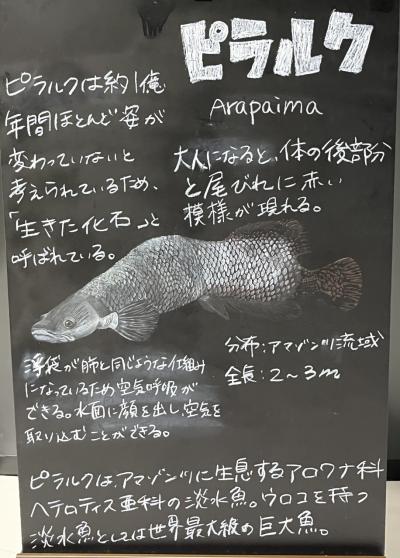 ピラルク
Arapaima
ピラルクは約1俺
年間ほとんど姿が
変わっていないと
考えられているため、
「生きた化石」と
呼ばれている。
大人になると、体の後部分
と尾びれに赤い
模様が現れる。
浮袋が肺と同じような仕組み
になっているため空気呼吸が
できる。水面に顔を出し、空気を
取り込むことができる。
分布:アマゾン川流域
全長:2~3m
ピラルクは、アマゾン川に生息するアロワナ科
ヘテロティス亜科の淡水魚。ウロコを持つ
淡水魚としては世界最大級の巨大魚。